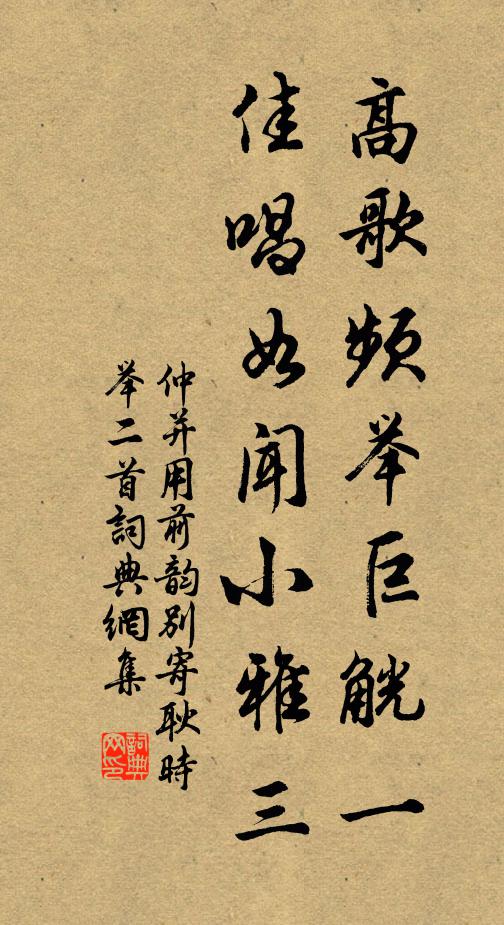 高歌频举巨觥一
佳唱如闻小雅三
仲并用前韵别寄耿時
举二首詞典網集
詞典網印